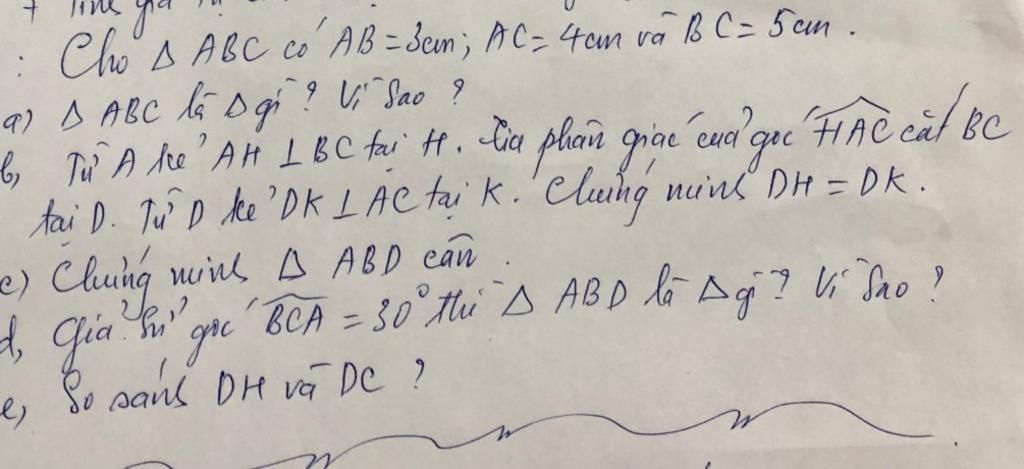 + Tính giá
: Cho Δ ABC có AB = 3cm; AC = 4cm và BC = 5cm.
a) Δ ABC là Δ gì? Vì sao?
b, Từ A kẻ AH ⊥ BC tại H. Tia phân giác của góc HAC cắt BC
tại D. Từ D kẻ DK ⊥ AC tại K. Chứng minh DH = DK.
c) Chứng minh Δ ABD cân.
d, Giả sử góc BCA = 30° thì Δ ABD là Δ gì? Vì sao?
e, So sánh DH và DC?